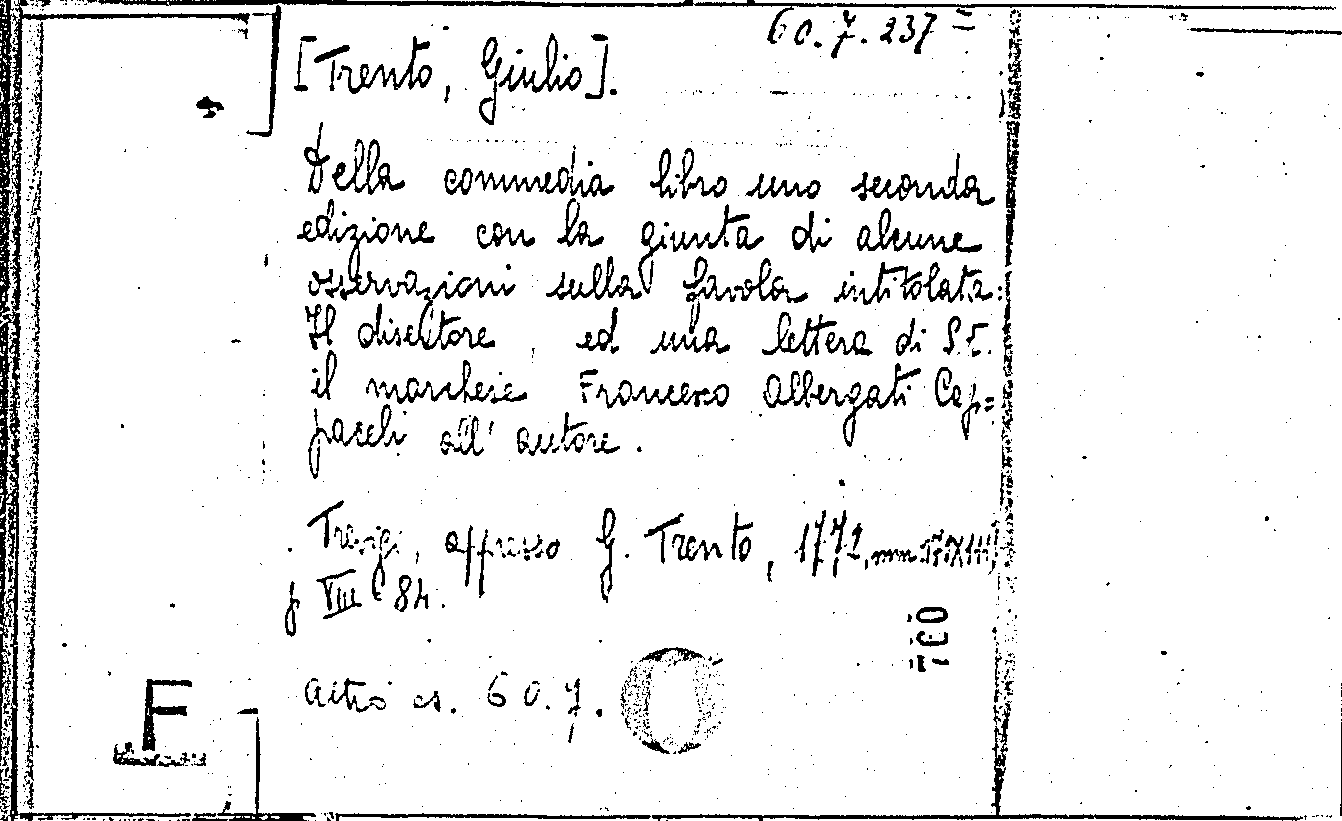 60.7.237=
[Trento, Giulio].
Della commedia libro uno seconda
edizione con la giunta di alcune
osservazioni sulla favola intitolata:
Il disertore, ed una lettera di S.E.
il marchese Francesco Albergati Cap=
paceli all' autore.
appresso G. Trento, 1772,
p VIII 84.
altro es. 60.7.
F